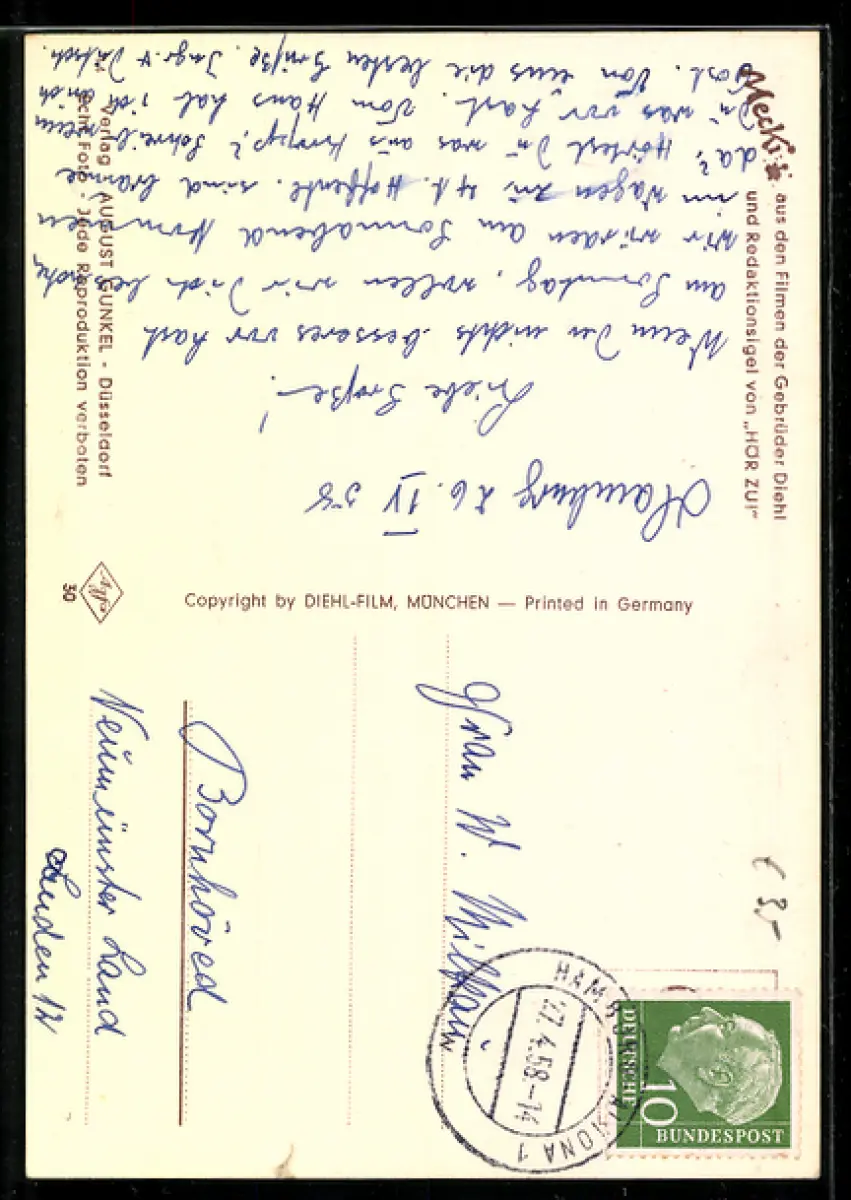 Mecki
aus den Filmen der Gebrüder Diehl
und Redaktionsigel von „HÖR ZU!"
Hamburg 26. IV 58
Liebe Große!
Wenn Du nichts besseres vor hast
am Sonntag, wollen wir Dich besuchen
wir würden am Sonnabend kommen
im Wagen zu 4t. Hoffentl. sind
da? Hörtest Du was aus
Du was vor hast. Vom Hans hab ich auch
Post. Von uns die besten Grüße.
Verlag AUGUST GUNKEL - Düsseldorf
Echt Foto - Jede Reproduktion verboten
Copyright by DIEHL-FILM, MÜNCHEN — Printed in Germany
Agfa
50
Frau W.
Bornhöved
Neumünster Land
Linden 12
€ 3,-
HAMBURG-ALTONA 1
27.4.58-14
DEUTSCHE
10
BUNDESPOST